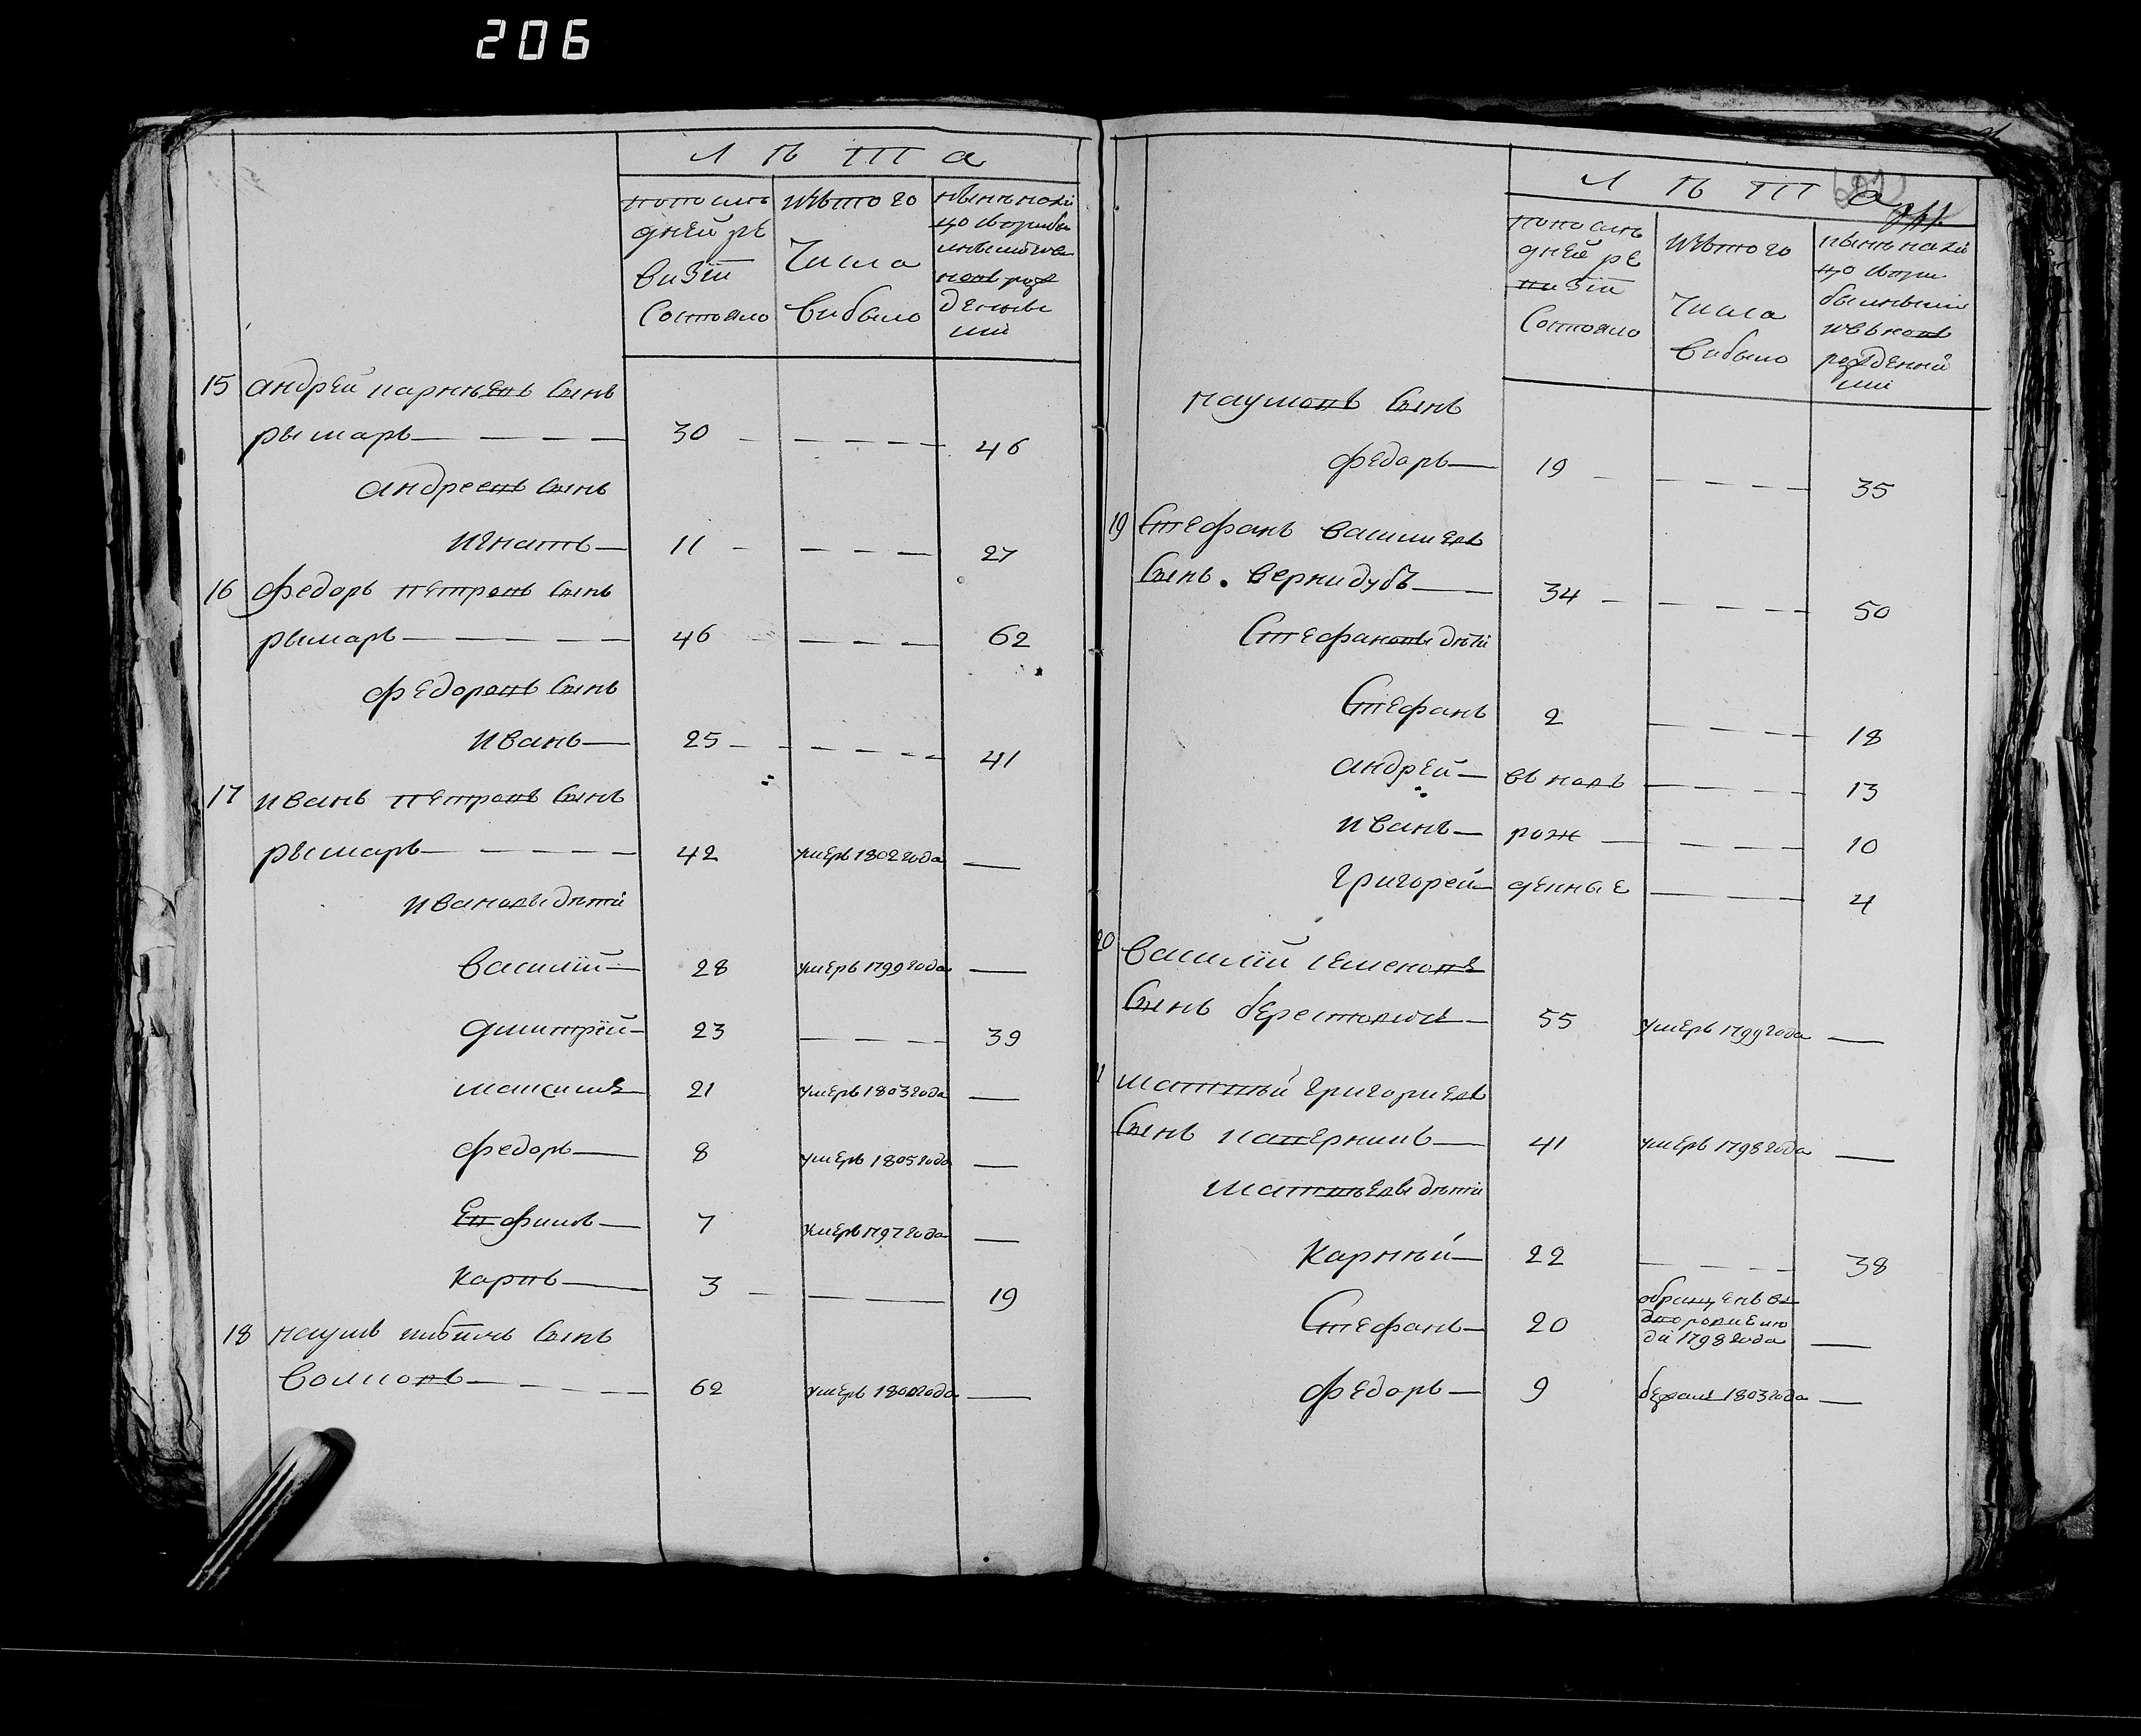 206
Л Ѣ Т а
попослѣ
дней ре
визіи
Состояло
изътого
Числа
выбыло
Андрей
15 Андрей карпѣевъ сынъ
рымарь 30 46
андреевъ сынъ
игнатъ 11 27
16 федоръ петровъ сынъ
рымарь 46 62
федоровъ сынъ
иванъ 25 41
17 иванъ петровъ сынъ
рымарь 42 умеръ 1802 года
ивановы дѣти
василій 28 умеръ 1799 года
дмитрій 23 39
максимъ 21 умеръ 1803 года
федоръ 8 умеръ 1805 года
Евфимъ 7 умеръ 1797 года
карпъ 3 19
18 наумъ сынъ
волковъ 62 умеръ 1800 года
Л Ѣ Т а
попослѣ
дней ре
визіи
Состояло
изътого
Числа
выбыло
наумовъ сынъ
федоръ 19 35
19 Стефанъ васильевъ
сынъ вернидубъ 34 50
Стефановы дѣти
Стефанъ 2 18
андрей въ новъ 13
иванъ рож 10
григорей денные 4
20 василій семеновъ
сынъ берестовскі 55 умеръ 1799 года
матвѣй григорьевъ
сынъ 41 умеръ 1798 года
матвѣевы дѣти
карпѣй 22 38
Стефанъ 20 1798 года
федоръ 9 бежалъ 1803 года